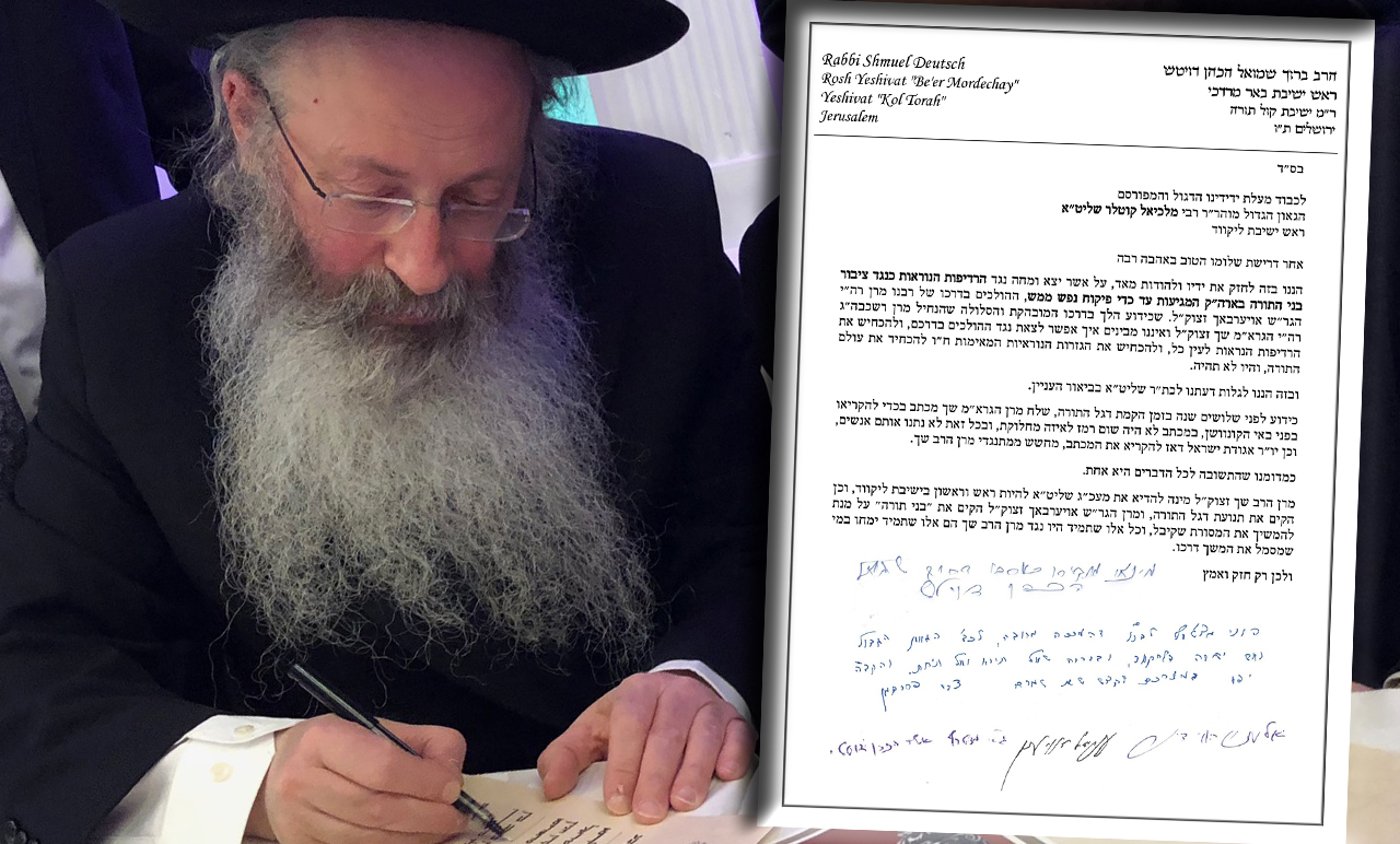 Rabbi Shmuel Deutsch
Rosh Yeshivat "Be'er Mordechay"
Yeshivat "Kol Torah"
Jerusalem
הרב ברוך שמואל הכהן דויטש
ראש ישיבת באר מרדכי
ר"מ ישיבת קול תורה
ירושלים ת"ו
בס"ד
לכבוד מעלת ידידינו הדגול והמפורסם
הגאון הגדול מוהר"ר רבי מלכיאל קוטלר שליט"א
ראש ישיבת ליקווד
אחר דרישת שלומו הטוב באהבה רבה
הננו בזה לחזק את ידיו ולהודות מאד, על אשר יצא ומחה נגד הרדיפות הנוראות כנגד ציבור
בני התורה בארה"ק המגיעות עד כדי פיקוח נפש ממש, ההולכים בדרכו של רבנו מרן רה"י
הגר"ש אויערבאך זצוק"ל. שכידוע הלך בדרכו המובהקת והסלולה שהנחיל מרן רשכבה"ג
רה"י הגרא"מ שך זצוק"ל ואיננו מבינים איך אפשר לצאת נגד ההולכים בדרכם, ולהכחיש את
הרדיפות הנוראות לעין כל, ולהכחיש את הגזרות הנוראיות המאימות ח"ו להכחיד את עולם
התורה, והיו לא תהיה.
ובזה הננו לגלות דעתנו לכת"ר שליט"א בביאור העניין.
כידוע לפני שלושים שנה בזמן הקמת דגל התורה, שלח מרן הגרא"מ שך מכתב בכדי להקריאו
בפני באי הקונוושן, במכתב לא היה שום רמז לאיזה מחלוקת, ובכל זאת לא נתנו אותם אנשים,
וכן יו"ר אגודת ישראל דאז להקריא את המכתב, מחשש ממתנגדי מרן הרב שך.
כמדומנו שהתשובה לכל הדברים היא אחת.
מרן הרב שך זצוק"ל מינה להדיא את מעכ"ג שליט"א להיות ראש וראשון בישיבת ליקווד, וכן
הקים את תנועת דגל התורה, ומרן הגר"ש אויערבאך זצוק"ל הקים את "בני תורה" על מנת
להמשיך את המסורת שקיבל, וכל אלו שתמיד היו נגד מרן הרב שך הם אלו שתמיד ימחו במי
שמסמל את המשך דרכו.
ולכן רק חזק ואמץ